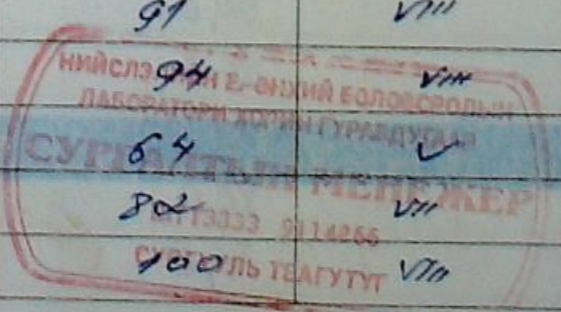 91 VIII
94 VIII
64 V
82 VII
100 VIII
ЕРӨНХИЙ БОЛОВСРОЛЫН
ЛАБОРАТОРИ ХОРИН ГУРАВДУГААР
СУРГАЛТЫН МЕНЕЖЕР
9114266
СУРГУУЛЬ